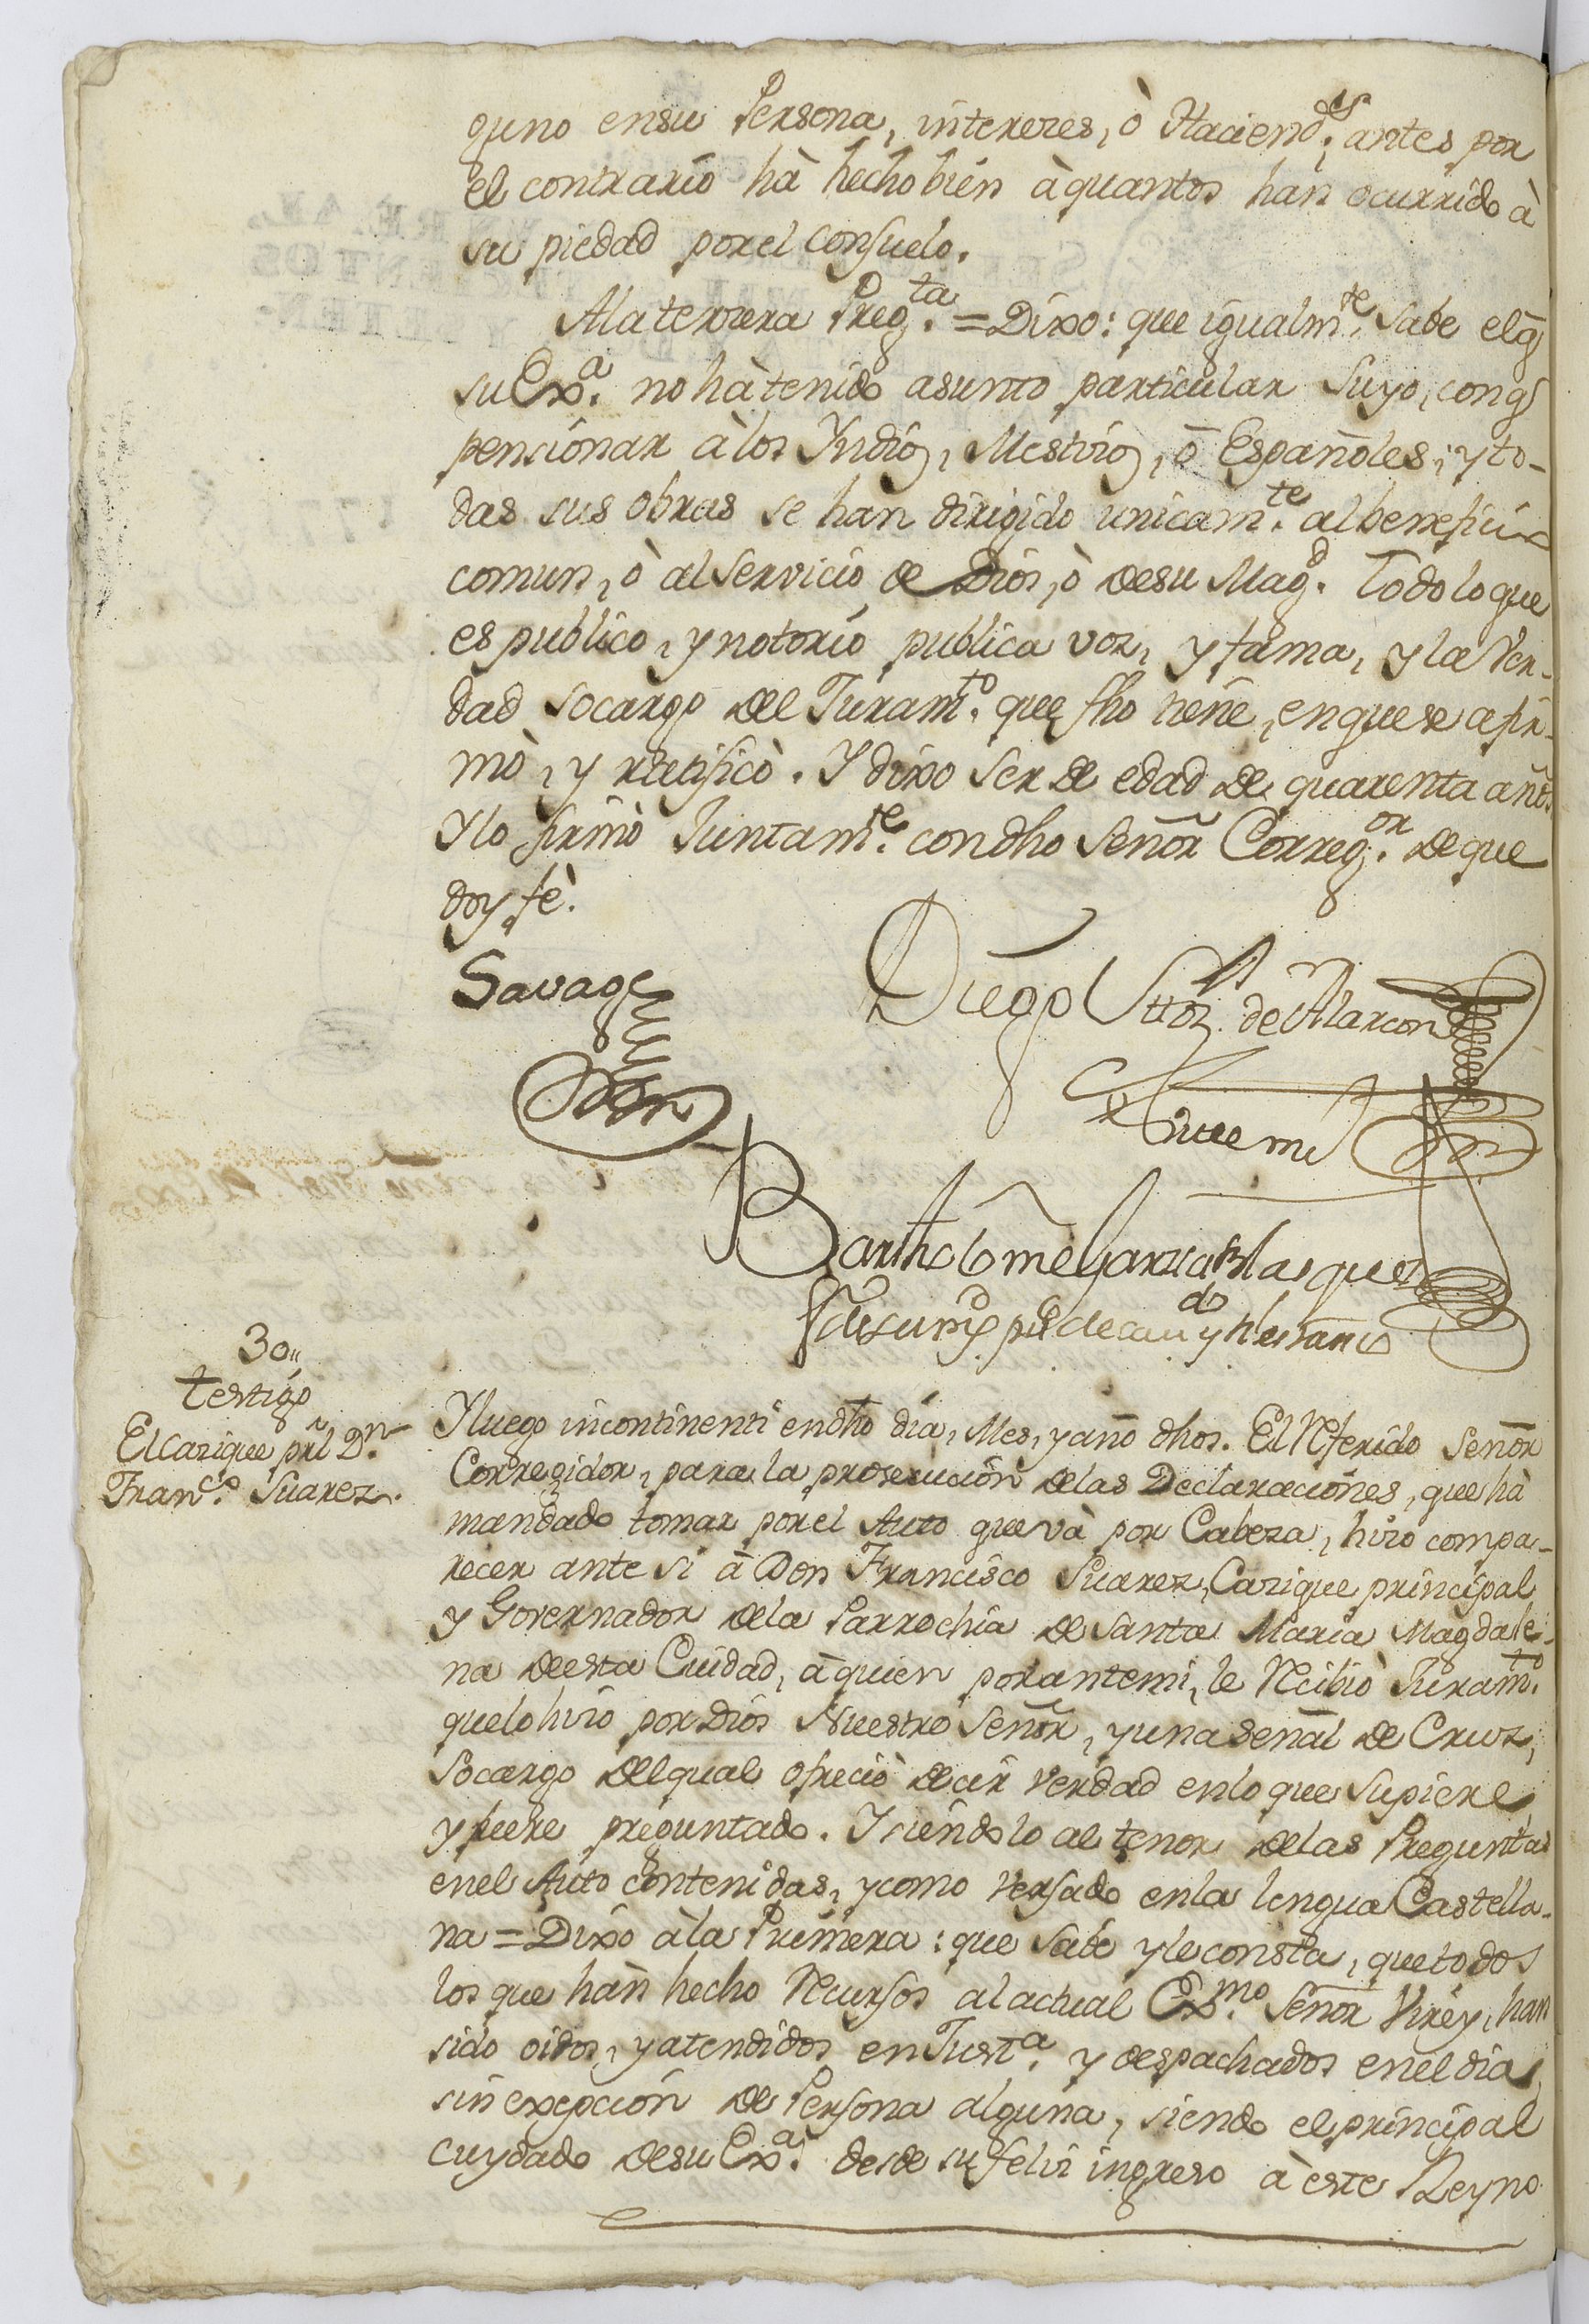 guno ensu Persona, intereses, ò Haciend.as; antes por
el contrario hà hecho bien à quantos han ocurrido à
su piedad por el consuelo.
Ala tercera Preg.ta = Dixo: que igualm.te sabe el q̃
su Ex.a no hà tenido asunto particular suyo, con q̃
pensionar à los Yndios, Mestizos, ò Españoles; y to-
das sus obras se han dirigido unicam.te al beneficio
comun, ò al Servicio de Dios, ò de su Mag.d Todo lo que
es publico, y notorio publica voz, y fama, y la Ver-
dad socargo del Juram.to que fho tiene, en que se afir-
mò, y ratificò. Y dixo ser de edad de quarenta años.
Y lo firmò Juntam.te con dho Señor Correg.or de que
doy fè.
Savage
Diego de Alarcon
Ante mi
Bartholome Garzia Blasquez
30,,
testigo
El Cazique pral D.n
Fran.co Suarez.
Y luego incontinenti en dho dia, Mes, y año dhos. El Referido Señor
Corregidor, para la prosecucion delas Declaraciones, que hà
mandado tomar por el Auto que và por Cabeza, hizo compa-
recer ante si à Don Francisco Suarez, Cazique principal
y Governador dela Parrochia de Santa Maria Magdale-
na de esta Cuidad, à quien por antemi, le Recibiò Juram.to
que lo hizo por Dios Nuestro Señor, y una señal de Cruz,
socargo del qual ofreciò decir verdad en lo que supiere,
y fuere preguntado. Y siendolo al tenor delas Preguntas
en el Auto contenidas, y como Versado en la lengua Castella-
na = Dixo à la Primera: que sabe y le consta, que todos
los que hàn hecho Recursos al actual Ex.mo Señor Virey, han
sido oidos, y atendidos en Just.a y despachados en el dia
sin exepcion de Persona alguna, siendo el principal
cuydado de su Ex.a desde su feliz ingreso à este Reyno